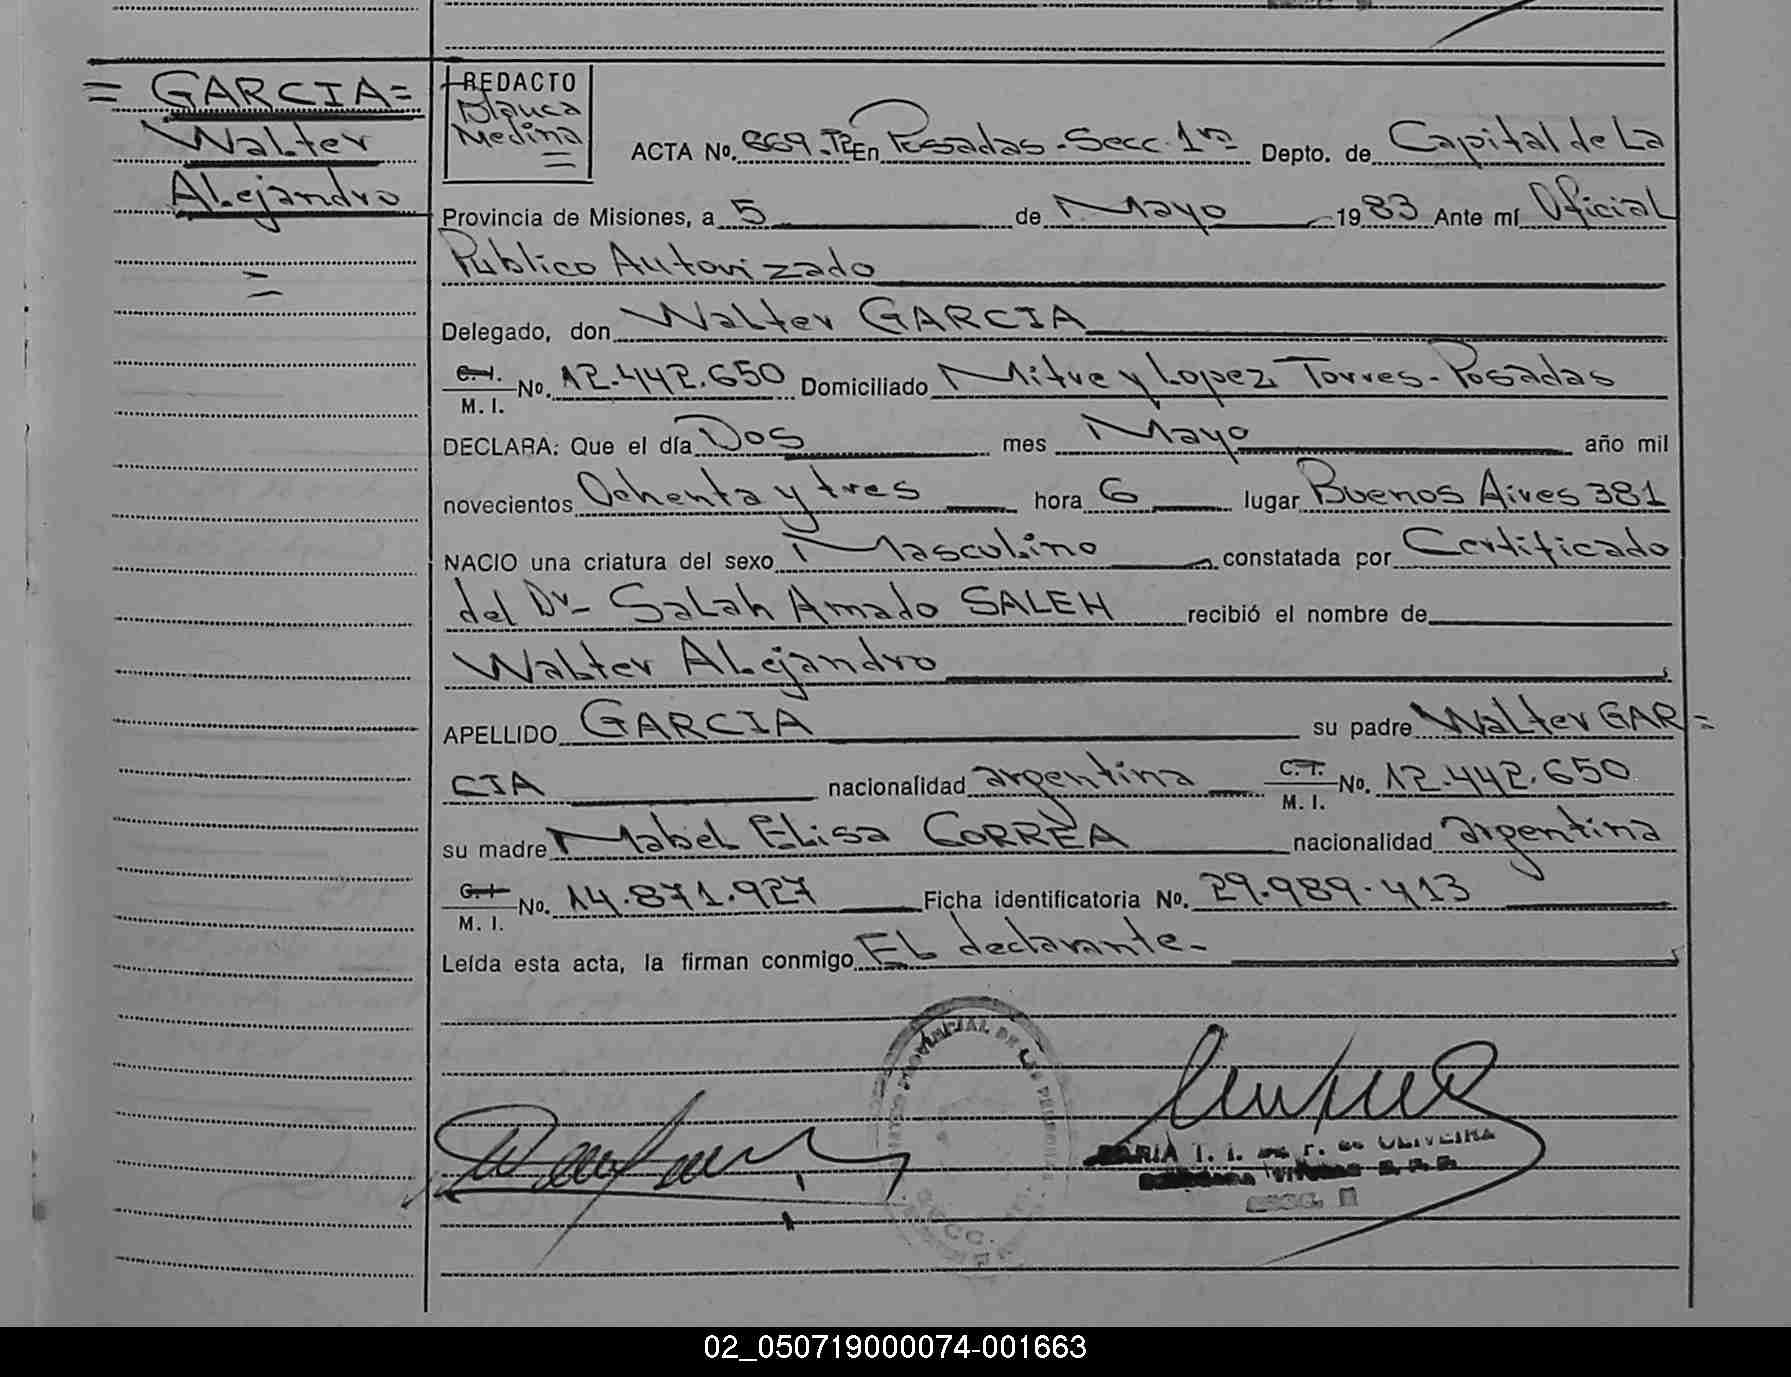 = GARCIA =
Walter
Alejandro
=
REDACTO
Blanca
Medina
=
ACTA No. 669-T2 En Posadas-Secc. 1ra Depto. de Capital de La
Provincia de Misiones, a 5 de Mayo 1983 Ante mí Oficial
Publico Autorizado
Delegado, don Walter GARCIA
C. I.
M. I. No. 12.442.650 Domiciliado Mitre y Lopez Torres-Posadas
DECLARA: Que el día Dos mes Mayo año mil
novecientos Ochenta y tres hora 6 lugar Buenos Aires 381
NACIO una criatura del sexo Masculino constatada por Certificado
del Dr- Salah Amado SALEH recibió el nombre de
Walter Alejandro
APELLIDO GARCIA su padre Walter GAR=
CIA nacionalidad argentina C. I.
M. I. No. 12.442.650
su madre Mabel Elisa CORREA nacionalidad argentina
C. I.
M. I. No. 14.871.927 Ficha identificatoria No. 29.989.413
Leída esta acta, la firman conmigo El declarante-
PROVINCIAL DE LAS PERSONAS
MARIA T. I. de OLIVEIRA
SECC.
02_050719000074-001663